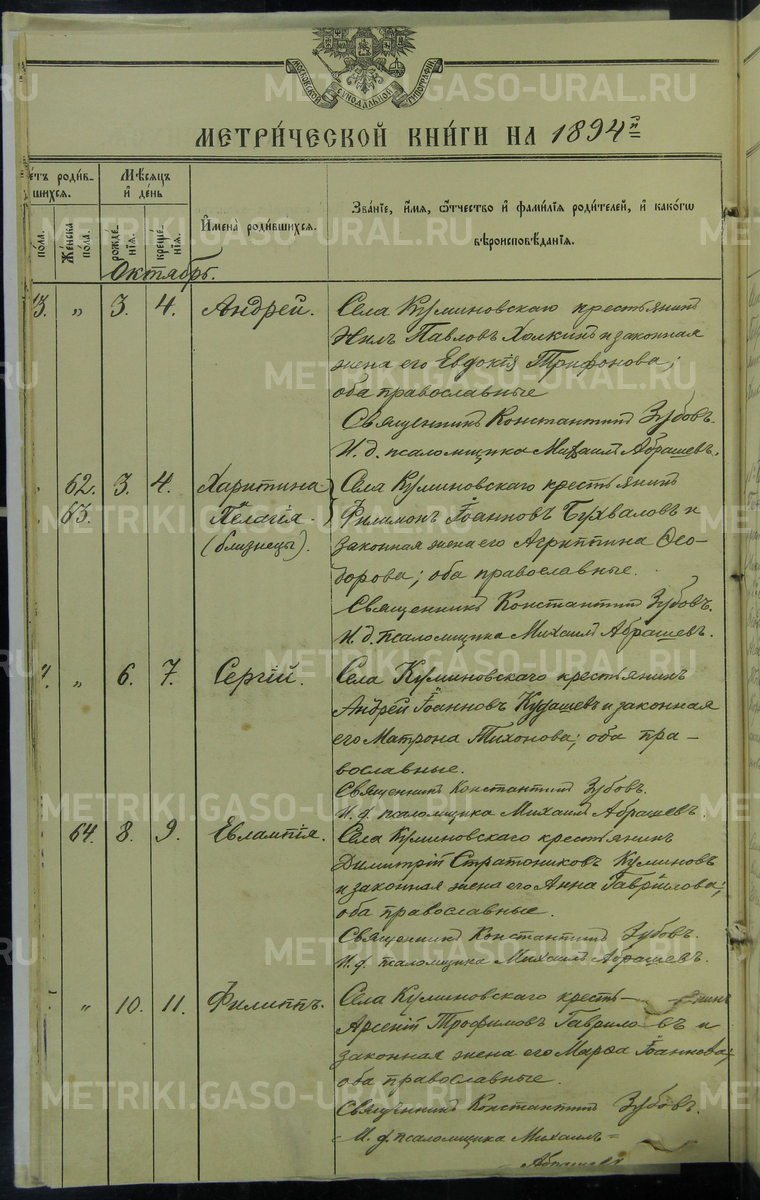 МОСКОВСКОЙ СУНОДАЛЬНОЙ ТИПОГРАФІИ
МЕТРИ́ЧЕСКОЙ КНИ́ГИ НА 1894
роди́в-
шихся.
Мѣ́сяцъ
и҆ де́нь
И҆мена̀ роди́вшихся.
Зва́ніе, и҆́мя, ѻ҆́тчество и҆ фами́лія роди́телей, и҆ како́гѡ
вѣроисповѣ́данія.
по́ла.
Же́нска
по́ла.
рожде́-
нія.
креще́-
нія.
Октябрь.
3. „ 3. 4. Андрей. Села Куминовскаго крестьянинъ
Нилъ Павловъ Холкинъ и законная
жена его Евдокія Трифонова;
оба православные
Священникъ Константинъ Зубовъ.
И. д. псаломщика Михаилъ Абрашевъ.
62. 3. 4. Харитина Села Куминовскаго крестьянинъ
63. Пелагія Филимонъ Іоанновъ Бухваловъ и
(близнецы). законная жена его Агриппина Ѳео-
дорова; оба православные.
Священникъ Константинъ Зубовъ.
И. д. псаломщика Михаилъ Абрашевъ.
„ 6. 7. Сергій. Села Куминовскаго крестьянинъ
Андрей Іоанновъ Кудашевъ и законная
его Матрона Тихонова; оба пра-
вославные.
Священникъ Константинъ Зубовъ.
И. д. псаломщика Михаилъ Абрашевъ.
64. 8. 9. Евлампія. Села Куминовскаго крестьянинъ
Димитрій Стратониковъ Куминовъ
и законная жена его Анна Гавріилова;
оба православные.
Священникъ Константинъ Зубовъ.
И. д. псаломщика Михаилъ Абрашевъ.
„ 10. 11. Филиппъ. Села Куминовскаго кресть- нинъ
Арсеній Трофимовъ Гаврило въ и
законная жена его Марѳа Іоаннова;
оба православные.
Священникъ Константинъ Зубовъ.
И. д. псаломщика Михаилъ=
Абрашевъ
METRIKI.GASO-URAL.RU